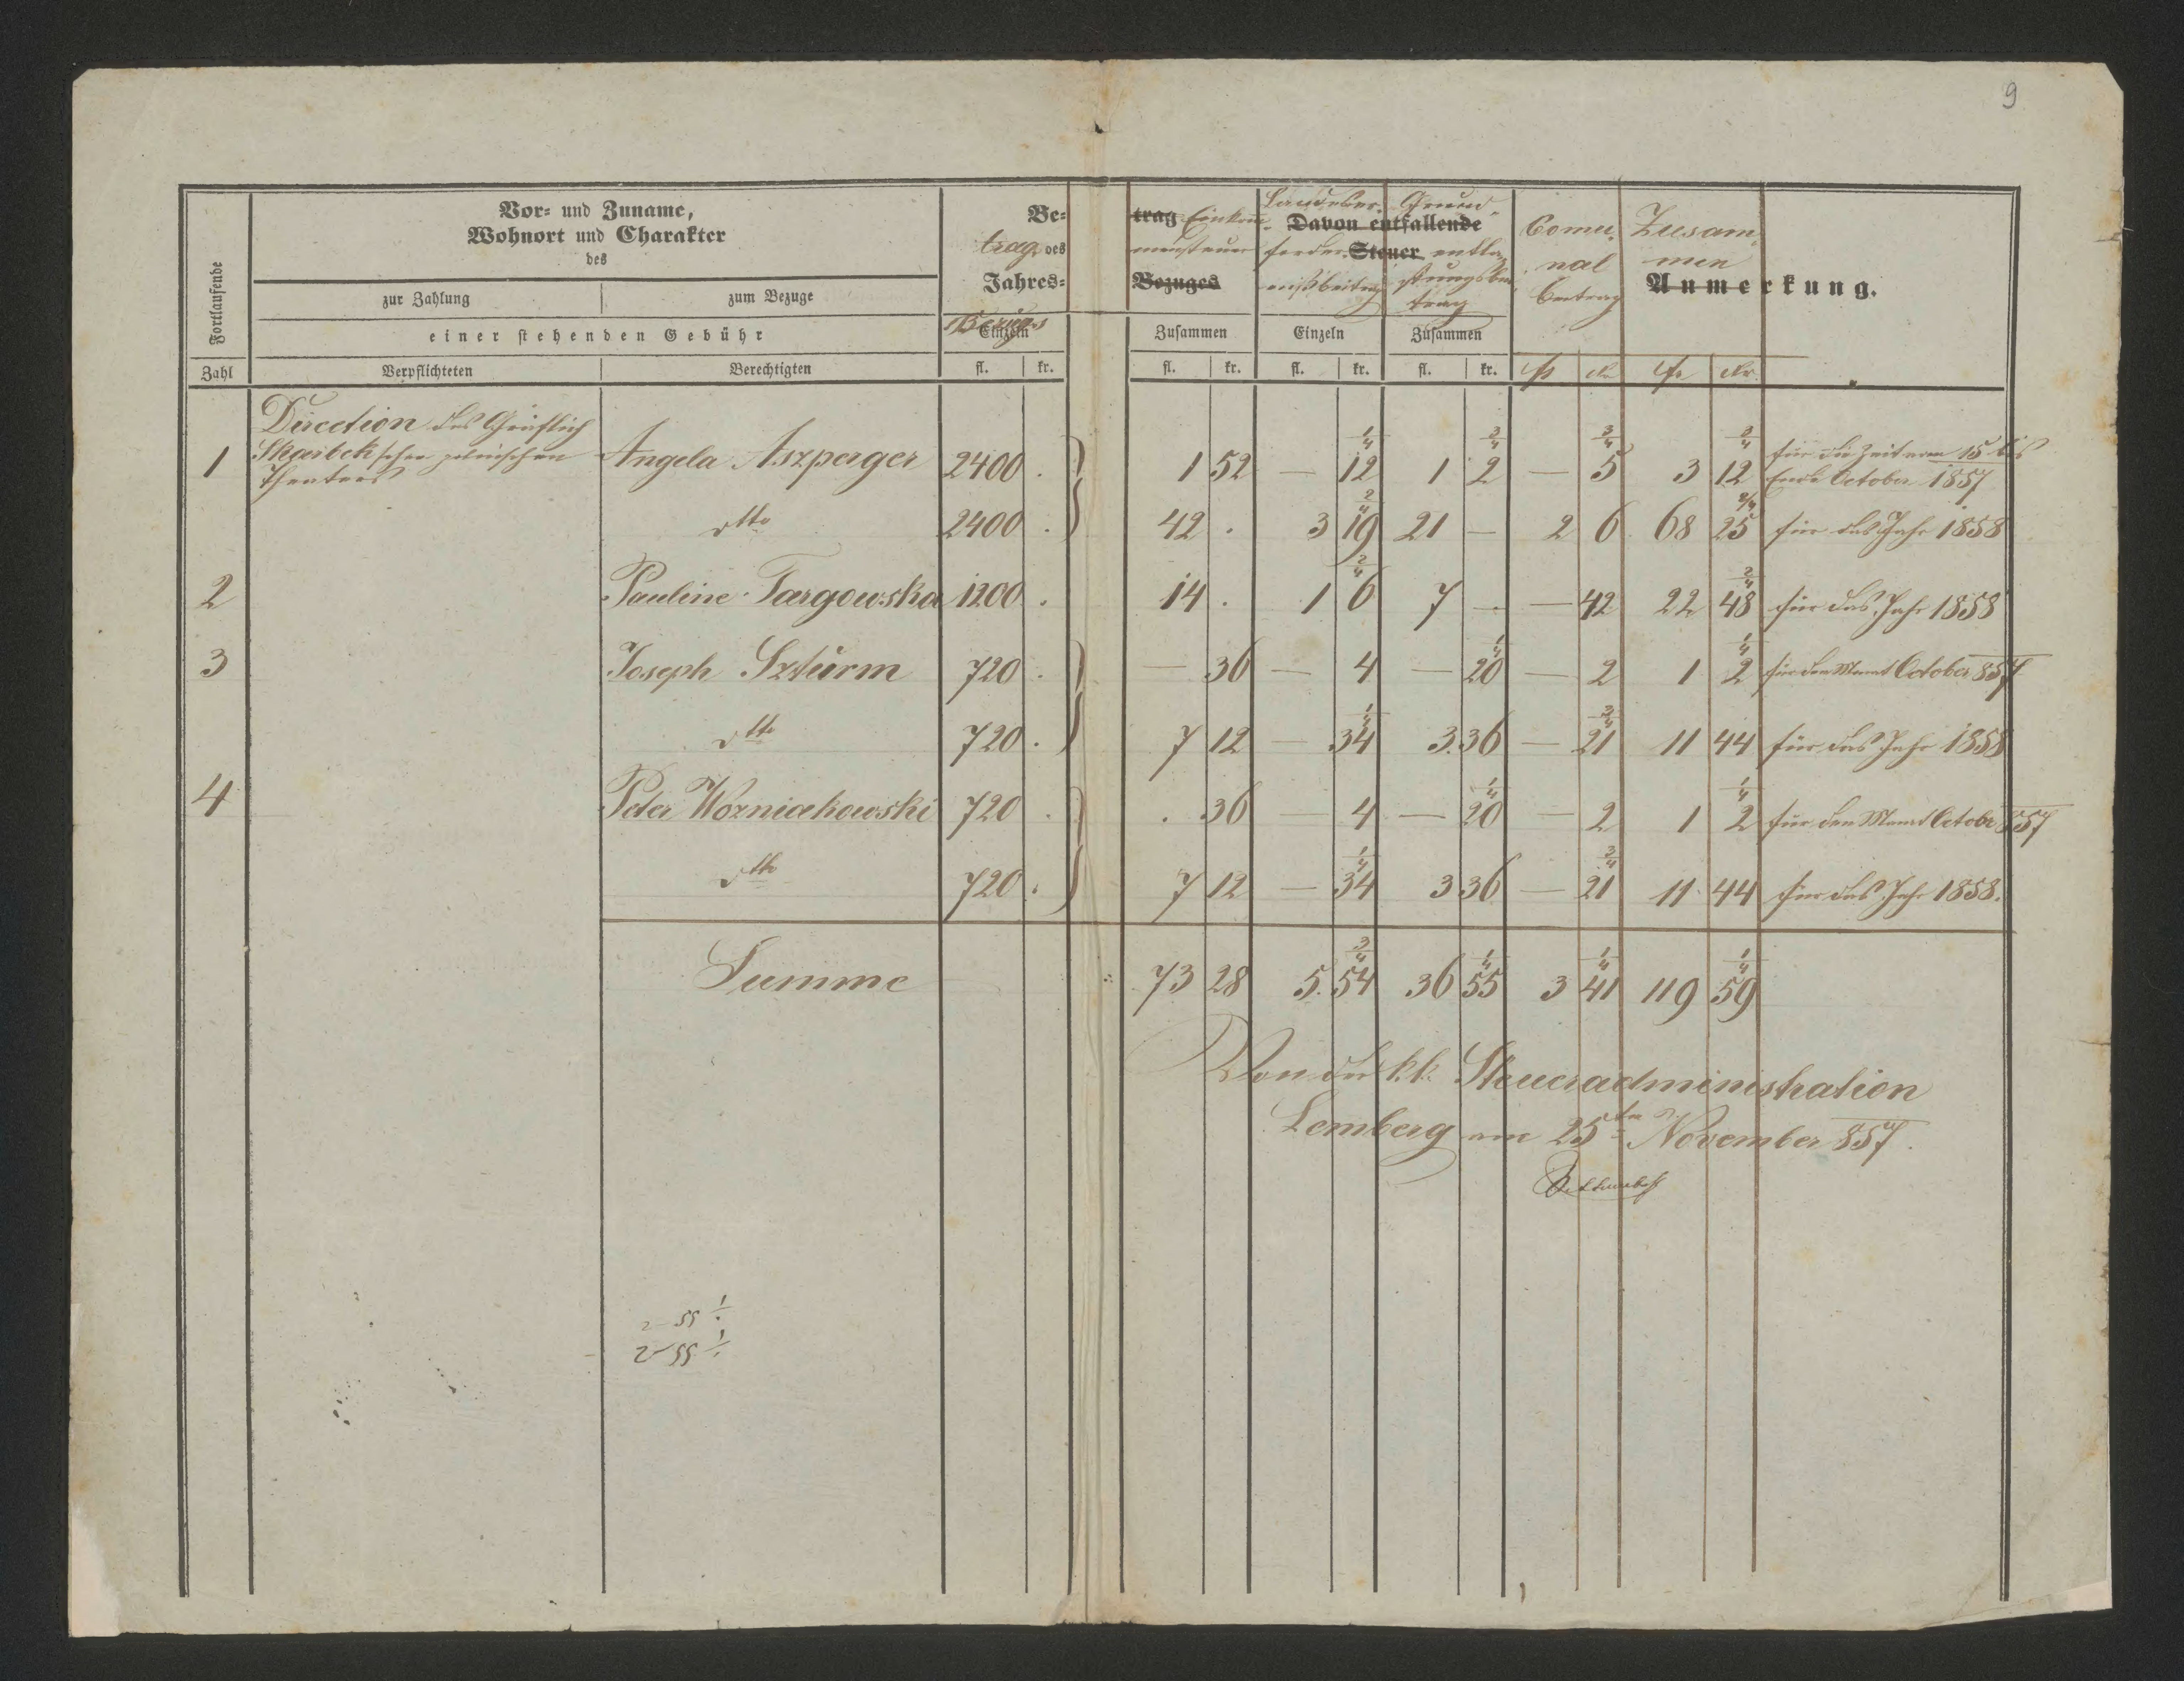 9
Fortlaufende
Zahl
Vor- und Zuname,
Wohnort und Charakter
des
zur Zahlung | zum Bezuge
einer stehenden Gebühr
Verpflichteten | Berechtigten
Be-
trag des
Jahres-
Bezuges
Einzeln
fl. | kr.
trag Einkom-
mensteuer
Bezuges
Zusammen
fl. | kr.
Landeser-
Davon entfallende
forder- Steuer
nißbeitrag
Einzeln
fl. | kr.
Grund-
entla-
stungsbei-
trag
Zusammen
fl. | kr.
Comu-
nal
Beitrag
fl | kr
Zusam-
men
fl | kr
Anmerkung.
Direction des Gräflich
Skarbek'schen polnischen
Theaters
1 | Angela Aszperger | 2400 . | 1 52 | — 12 1/4 | 1 2 2/4 | — 5 3/4 | 3 12 2/4 | für die Zeit vom 15 bis Ende October 1857
dtto | 2400 . | 42 . | 3 19 2/4 | 21 — | 2 6 | 68 25 2/4 | für das Jahr 1858
2 | Pauline Targowska | 1200 . | 14 . | 1 6 2/4 | 7 — | — 42 | 22 48 2/4 | für das Jahr 1858
3 | Joseph Szturm | 720 . | — 36 | — 4 | — 20 1/4 | — 2 | 1 2 1/4 | für den Monat October 857
dtto | 720 . | 7 12 | — 34 1/4 | 3 36 | — 21 3/4 | 11 44 | für das Jahr 1858
4 | Peter Wozniakowski | 720 . | . 36 | — 4 | — 20 1/4 | — 2 | 1 2 1/4 | für den Monat October 857
dtto | 720 . | 7 12 | — 34 1/4 | 3 36 | — 21 3/4 | 11 44 | für das Jahr 1858.
Summe | 73 28 | 5 54 3/4 | 36 55 1/4 | 3 41 1/4 | 119 59 1/4
Von der k.k. Steueradministration
Lemberg am 25ten November 857.
2 55 1/.
2 55 1/.